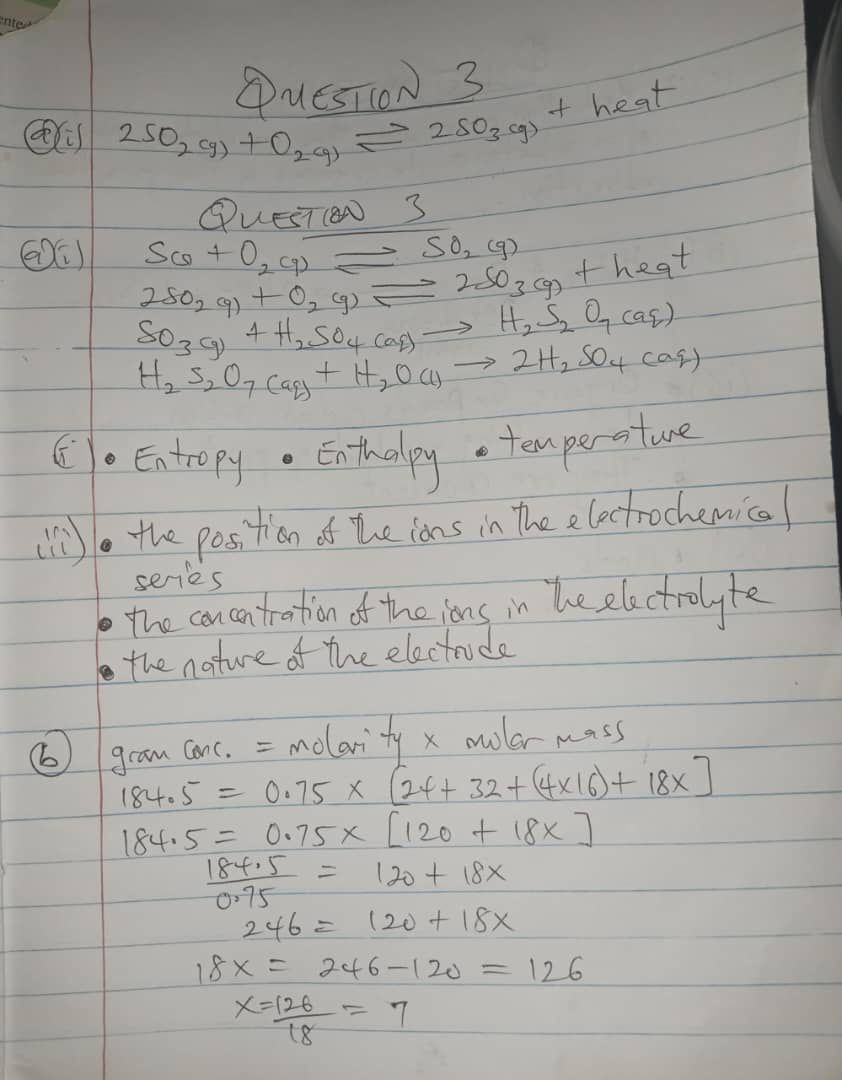 QUESTION 3
a)i) 2SO₂ (g) + O₂ (g) ⇌ 2SO₃ (g) + heat
QUESTION 3
a)(i) S(s) + O₂ (g) ⇌ SO₂ (g)
2SO₂ (g) + O₂ (g) ⇌ 2SO₃ (g) + heat
SO₃ (g) + H₂SO₄ (aq) → H₂S₂O₇ (aq)
H₂S₂O₇ (aq) + H₂O (l) → 2H₂SO₄ (aq)
(i) • Entropy • Enthalpy • temperature
iii) • the position of the ions in the electrochemical
series
• the concentration of the ions in the electrolyte
• the nature of the electrode
(b) gram conc. = molarity x molar mass
184.5 = 0.75 x [24 + 32 + (4x16) + 18x]
184.5 = 0.75 x [120 + 18x]
184.5/0.75 = 120 + 18x
246 = 120 + 18x
18x = 246 - 120 = 126
x = 126/18 = 7